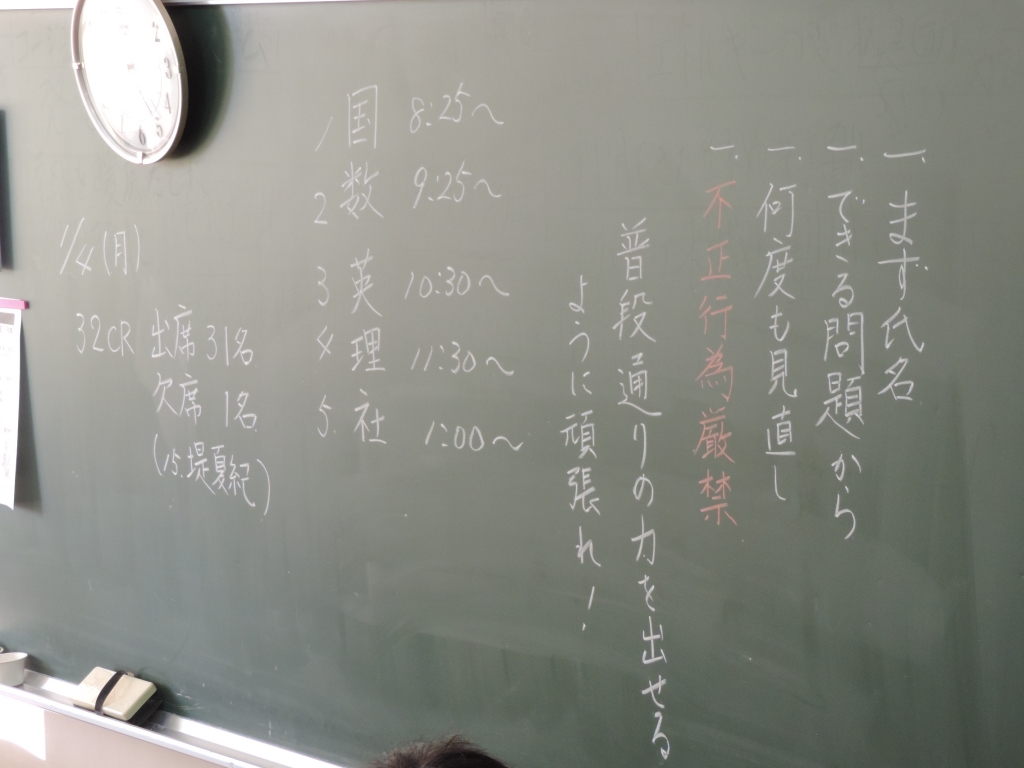 一、まず氏名
一、できる問題から
一、何度も見直し
一、不正行為厳禁
普段通りの力を出せる
ように頑張れ！
1 国 8:25～
2 数 9:25～
3 英 10:30～
4 理 11:30～
5. 社 1:00～
1/4(月)
32CR 出席 31名
欠席 1名
(15.堤夏紀)